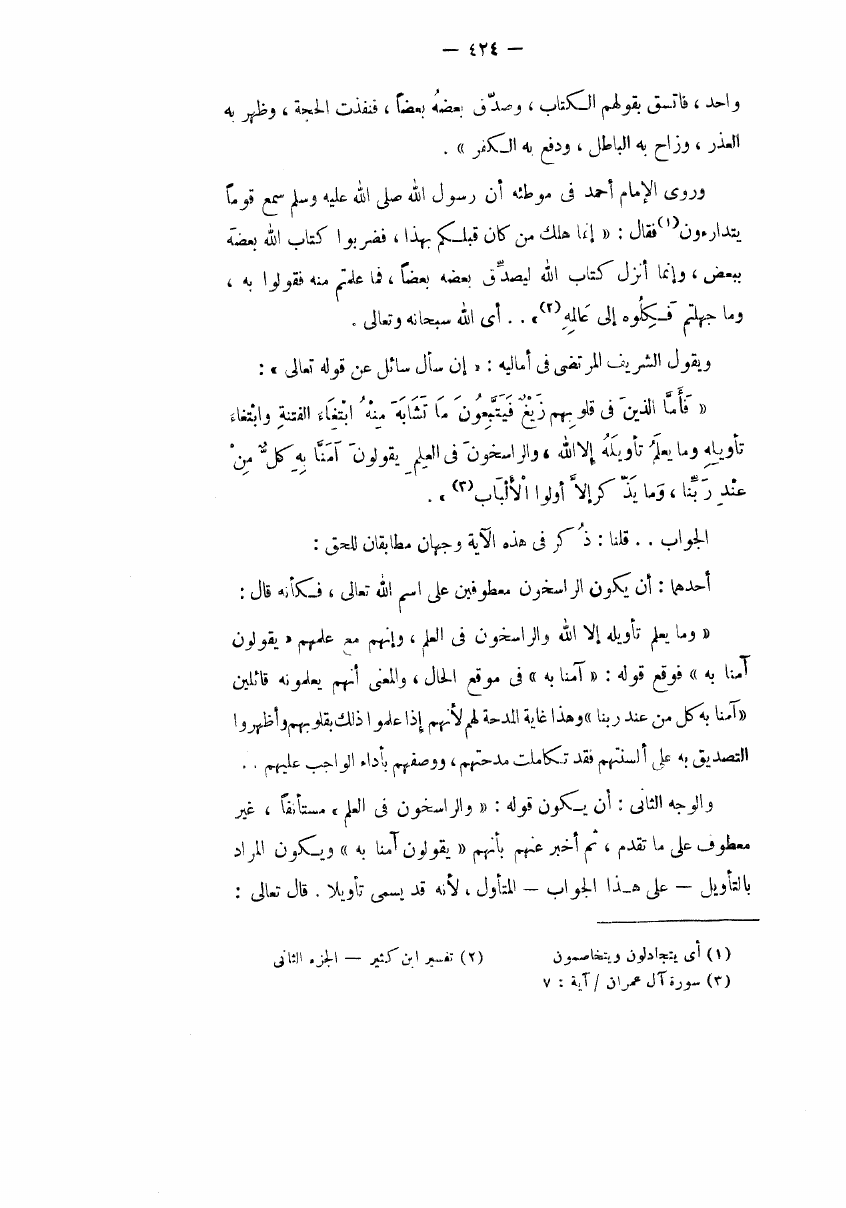 — ٤٢٤ —
واحد ، فاتسق بقولهم الكتاب ، وصدّق بعضهُ بعضاً ، فنفذت الحجة ، وظهر به
العذر ، وزاح به الباطل ، ودفع به الكفر » .
وروى الإمام أحمد فى موطئه أن رسول الله صلى الله عليه وسلم سمع قوماً
يتدارءون(١) فقال : « إنما هلك من كان قبلكم بهذا ، فضربوا كتاب الله بعضهُ
ببعض ، وإنما أنزل كتاب الله ليصدِّق بعضه بعضاً ، فما علمتم منه فقولوا به ،
وما جهلتم فَكِلُوه إلى عَالِمِهِ(٢) » . . أى الله سبحانه وتعالى .
ويقول الشريف المرتضى فى أماليه : « إن سأل سائل عن قوله تعالى » :
« فَأَمَّا الذينَ فى قلوبِهم زَيْغٌ فَيَتَّبِعُونَ مَا تَشَابَهَ مِنْهُ ابْتِغَاءَ الفتنةِ وابْتغاءَ
تأويلِهِ وما يعلمُ تأويلَهُ إلا الله ، والراسخونَ فى العِلمِ يقولونَ آمَنَّا بِهِ كلٌّ مِنْ
عنْدِ رَبِّنا ، وَما يَذَّكرُ إلاَّ أولوا الْأَلْبَاب(٣) » .
الجواب . . قلنا : ذُكر فى هذه الآية وجهان مطابقان للحق :
أحدهما : أن يكون الراسخون معطوفين على اسم الله تعالى ، فكأنه قال :
« وما يعلم تأويله إلا الله والراسخون فى العلم ، وإنهم مع علمهم « يقولون
آمنا به » فوقع قوله : « آمنا به » فى موقع الحال ، والمعنى أنهم يعلمونه قائلين
«آمنا به كل من عند ربنا» وهذا غاية المدحة لهم لأنهم إذا علموا ذلك بقلوبهم وأظهروا
التصديق به على ألسنتهم فقد تكاملت مدحتهم ، ووصفهم بأداء الواجب عليهم . .
والوجه الثانى : أن يكون قوله : « والراسخون فى العلم » مستأنفاً ، غير
معطوف على ما تقدم ، ثم أخبر عنهم بأنهم « يقولون آمنا به » ويكون المراد
بالتأويل — على هذا الجواب — المتأول ، لأنه قد يسمى تأويلا . قال تعالى :
(١) أى يتجادلون ويتخاصمون (٢) تفسير ابن كثير — الجزء الثانى
(٣) سورة آل عمران / آية : ٧